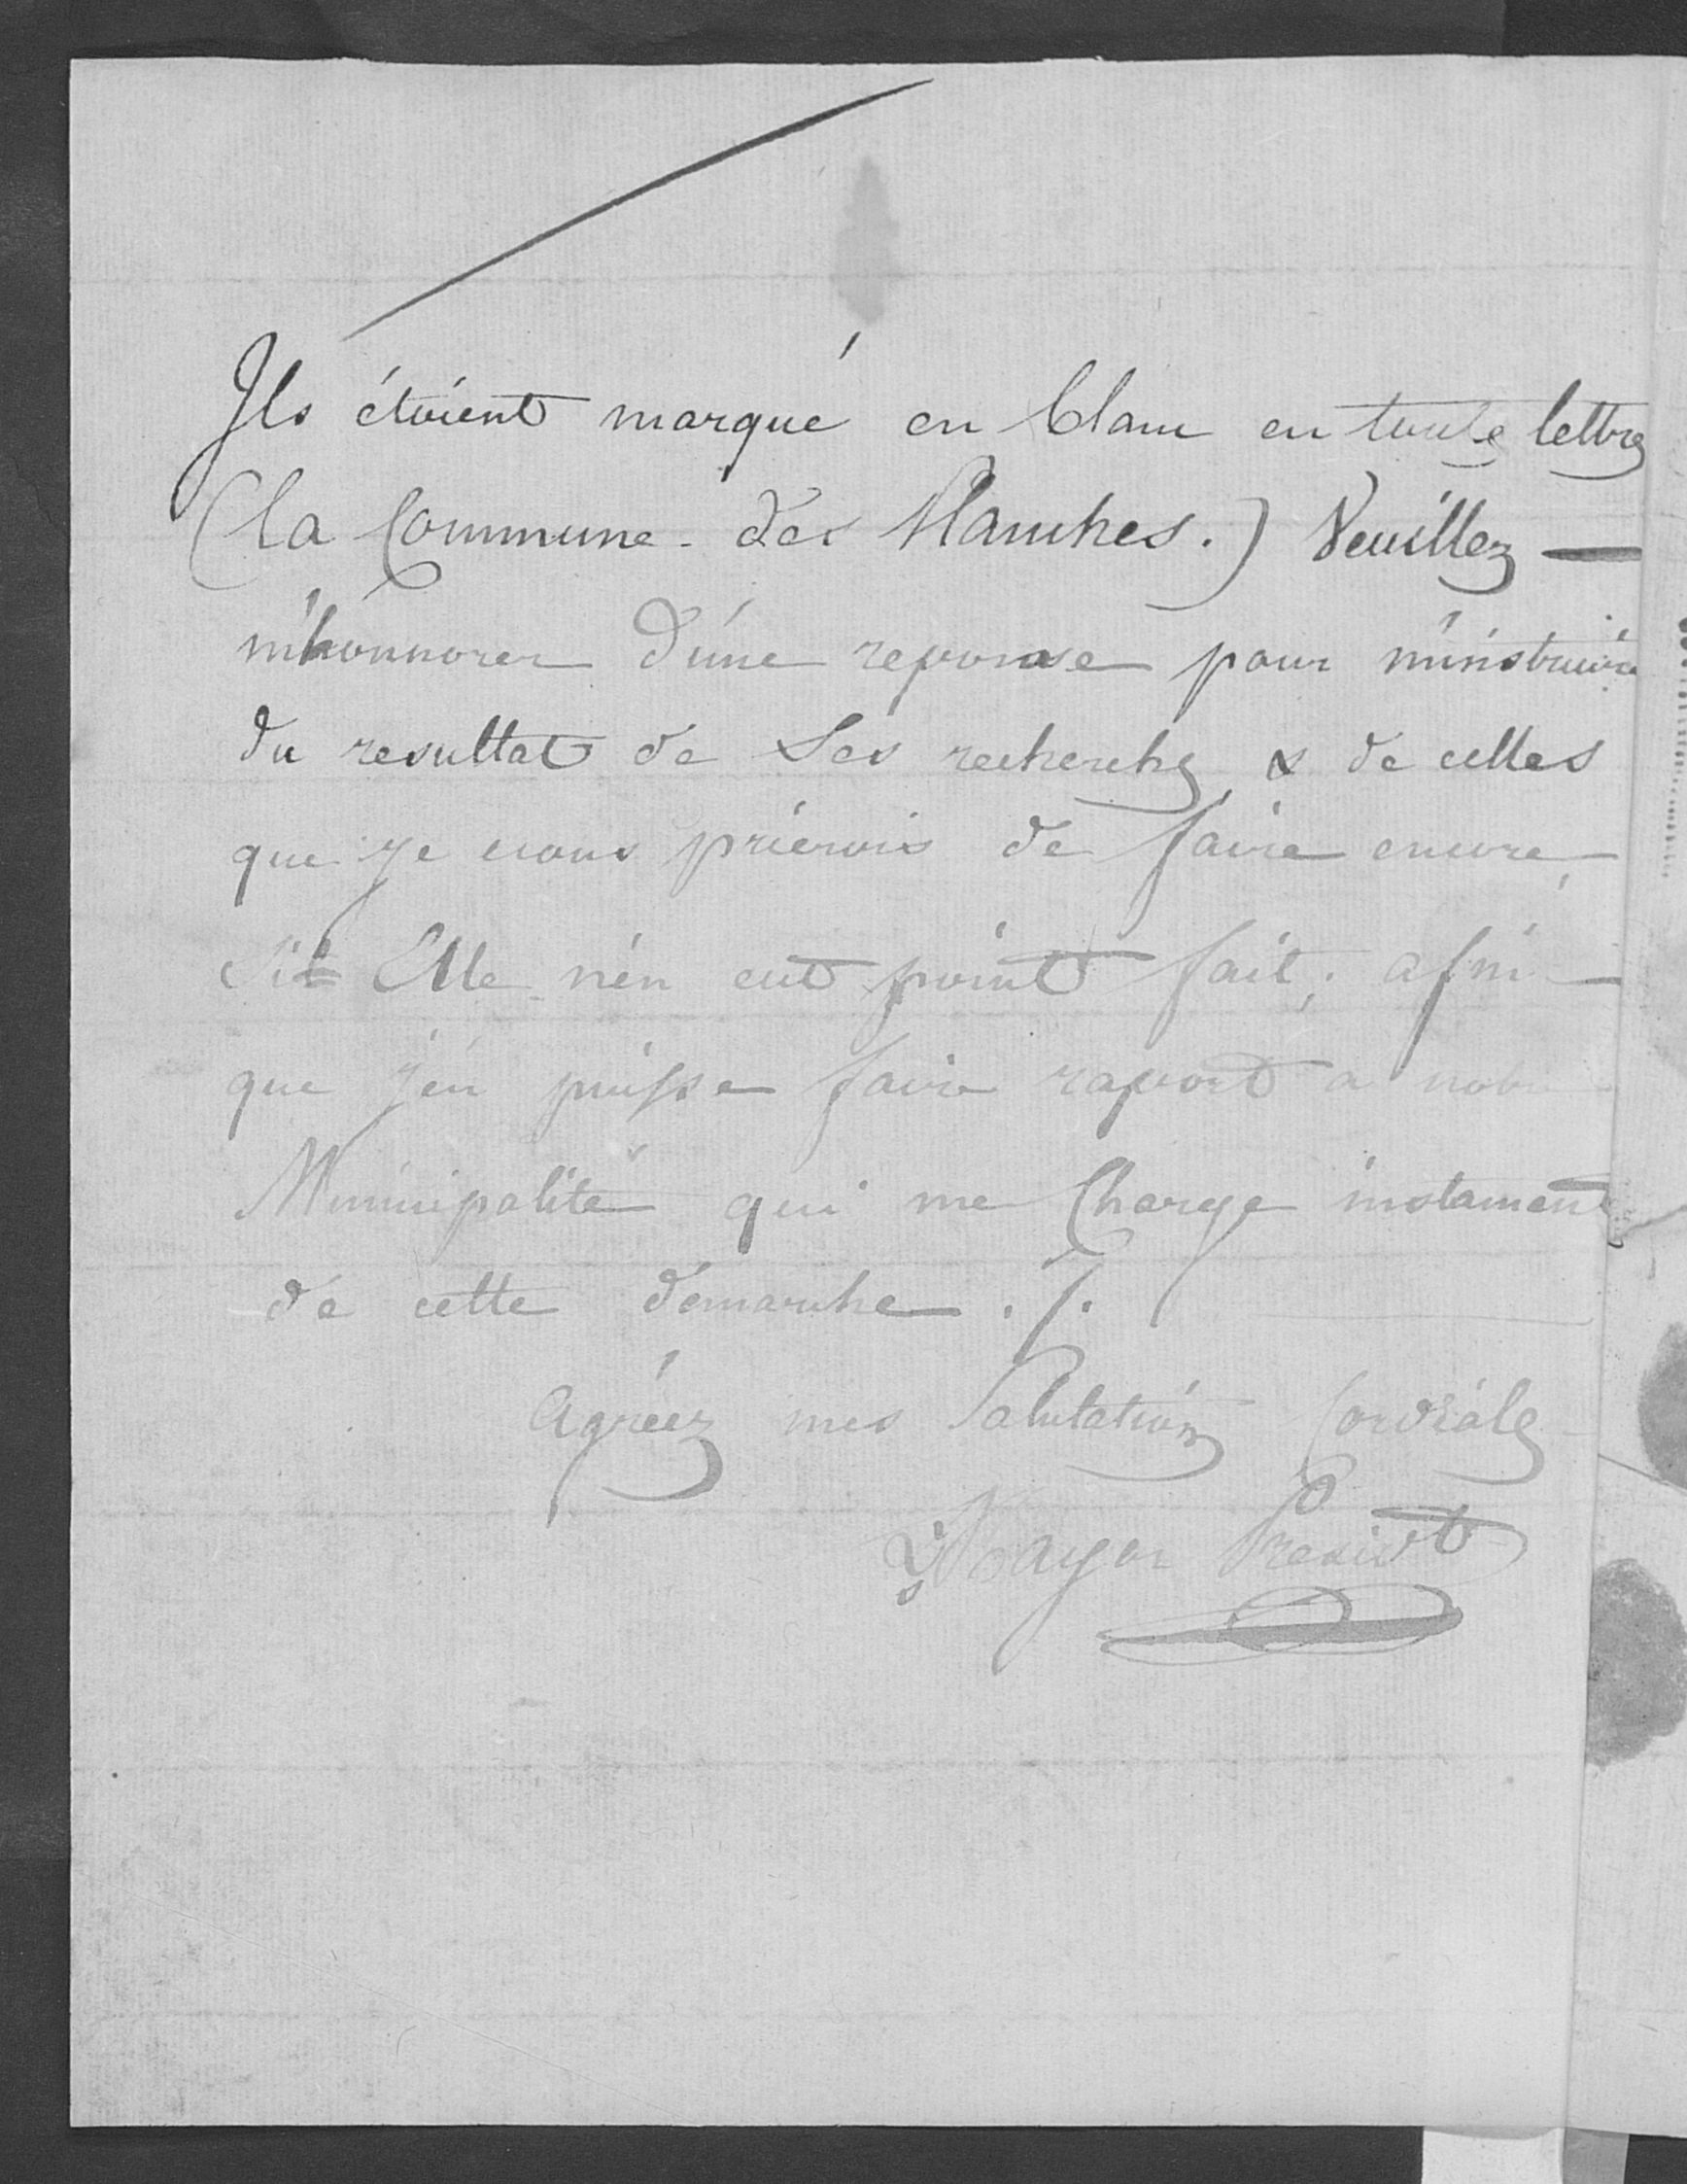 Ils étoient marqué en blanc en toute lettres
(la Commune des Planches.) Veuillez —
m'honnorer d'une reponse pour m'instruire
du resultat de Ses recherches & de celles
que je vous prierois de faire encore
Si Elle n'en eut point fait; afin
que j'en puisse faire raport a notre
Municipalité qui me Charge instament
de cette démarche ./.
Agréez mes Salutations Cordiales
Mayor Presidt